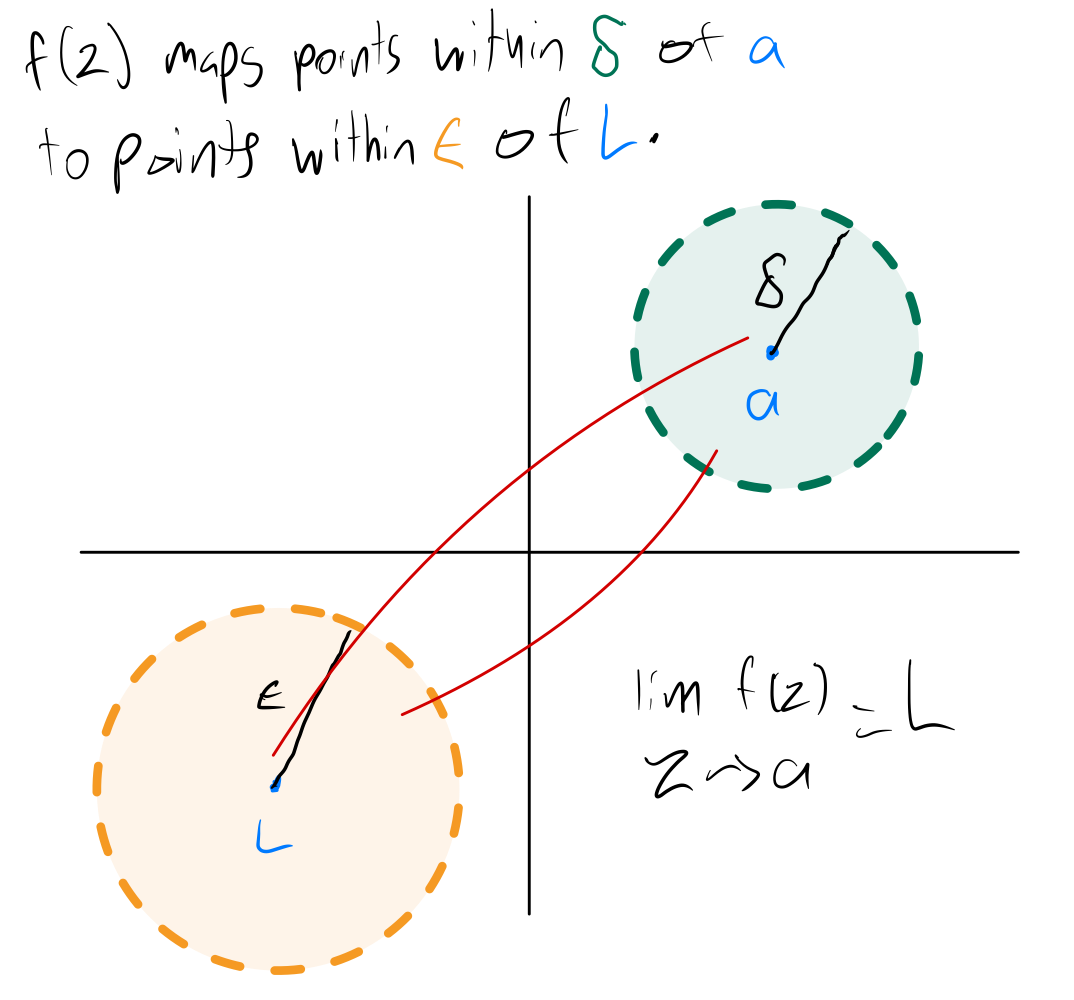 f(z) maps points within δ of a
to points within ε of L.
δ
a
ε
L
lim f(z) = L
z→a